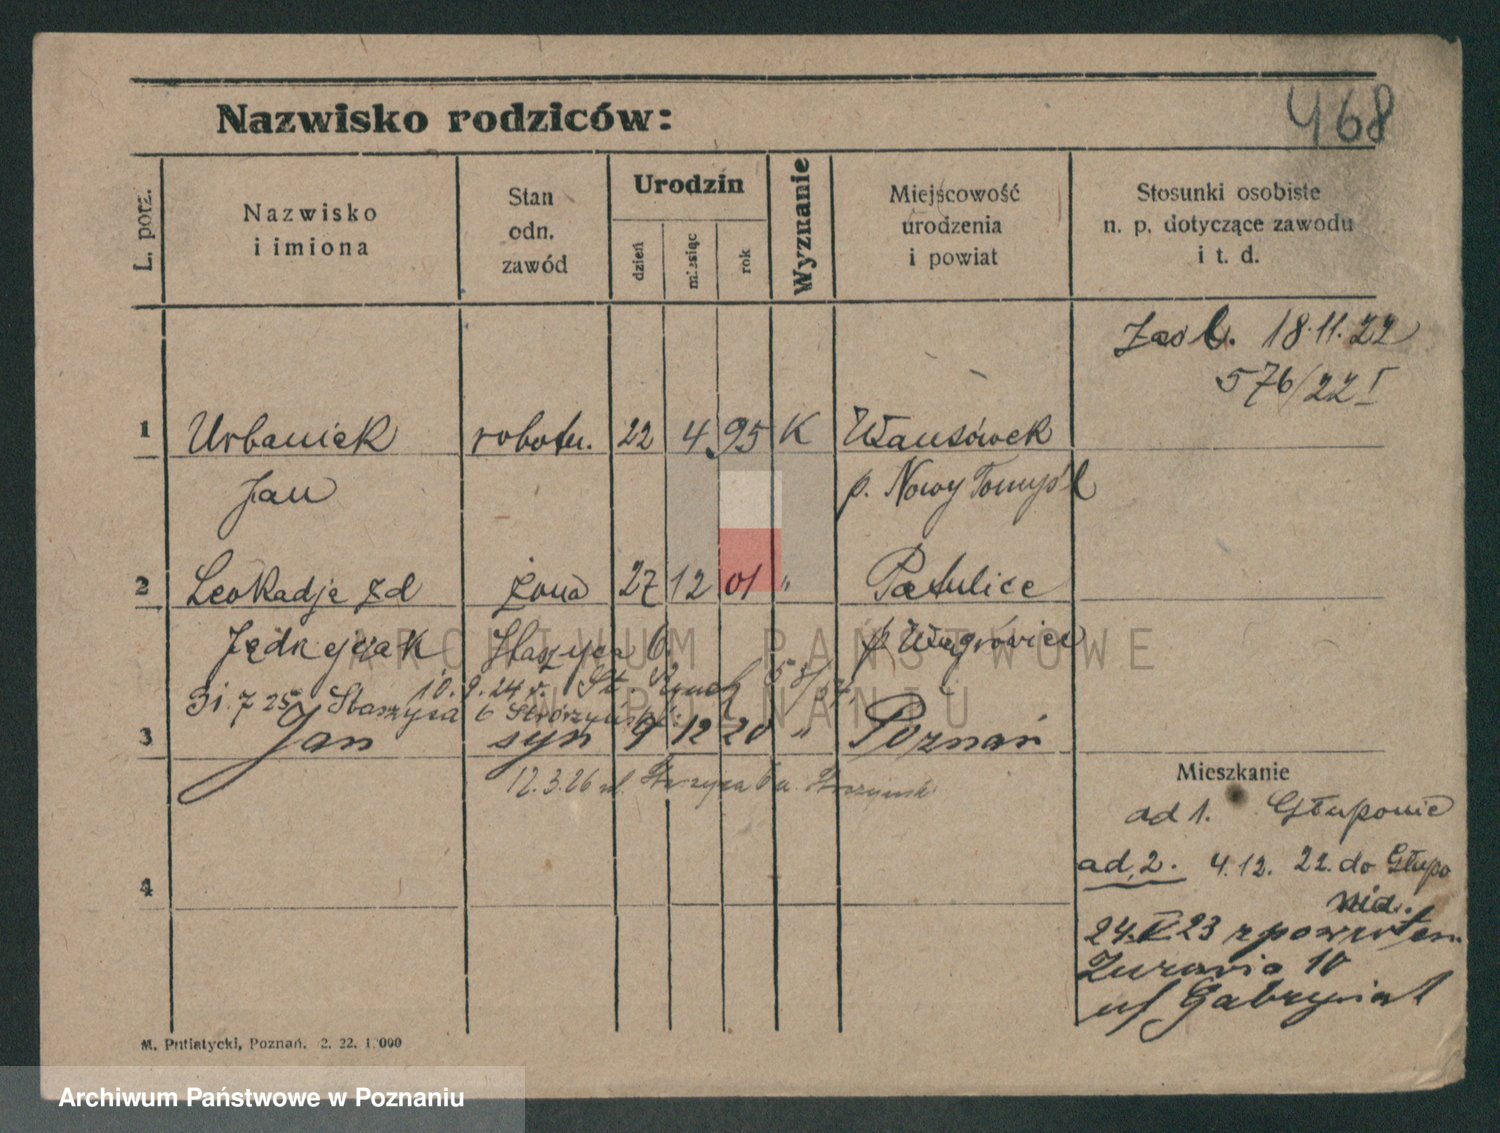 468
Nazwisko rodziców:
L. porz.
Nazwisko
i imiona
Stan
odn.
zawód
Urodzin
dzień
miesiąc
rok
Wyznanie
Miejscowość
urodzenia
i powiat
Stosunki osobiste
n. p. dotyczące zawodu
i t. d.
18.11.22
576/22 I
1 Urbaniek robotn. 22 4 95 K
Jan p. Nowy Tomyśl
2 Leokadje zd żona 27 12 01 "
p Wągrowiec
10.9.24 r.
31.7 25 Staszyca 6
3 Jan syn 9 12 20 " Poznań
12.3.26
Mieszkanie
ad 1. Głuponie
ad 2. 4.12. 22. do Głupo
nid.
24.V.23 z powrotem
Żurawia 10
4
M. Putiatycki, Poznań. 2. 22. 1.000
ARCHIWUM PAŃSTWOWE
W POZNANIU
Archiwum Państwowe w Poznaniu